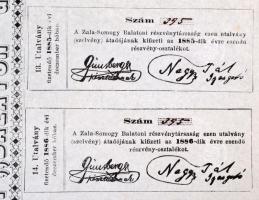 13. Utalvány
fizetendő 1885-dik évi
deczember hóban.
Szám 395
A Zala-Somogy Balatoni részvénytársaság ezen utalvány
(szelvény) átadójának kifizeti az 1885-dik évre esendő
részvény-osztalékot.
Nagy Pál
igazgató
14. Utalvány
fizetendő 1886-dik évi
deczember hóban.
Szám 395
A Zala-Somogy Balatoni részvénytársaság ezen utalvány
(szelvény) átadójának kifizeti az 1886-dik évre esendő
részvény-osztalékot.
Nagy Pál
igazgató